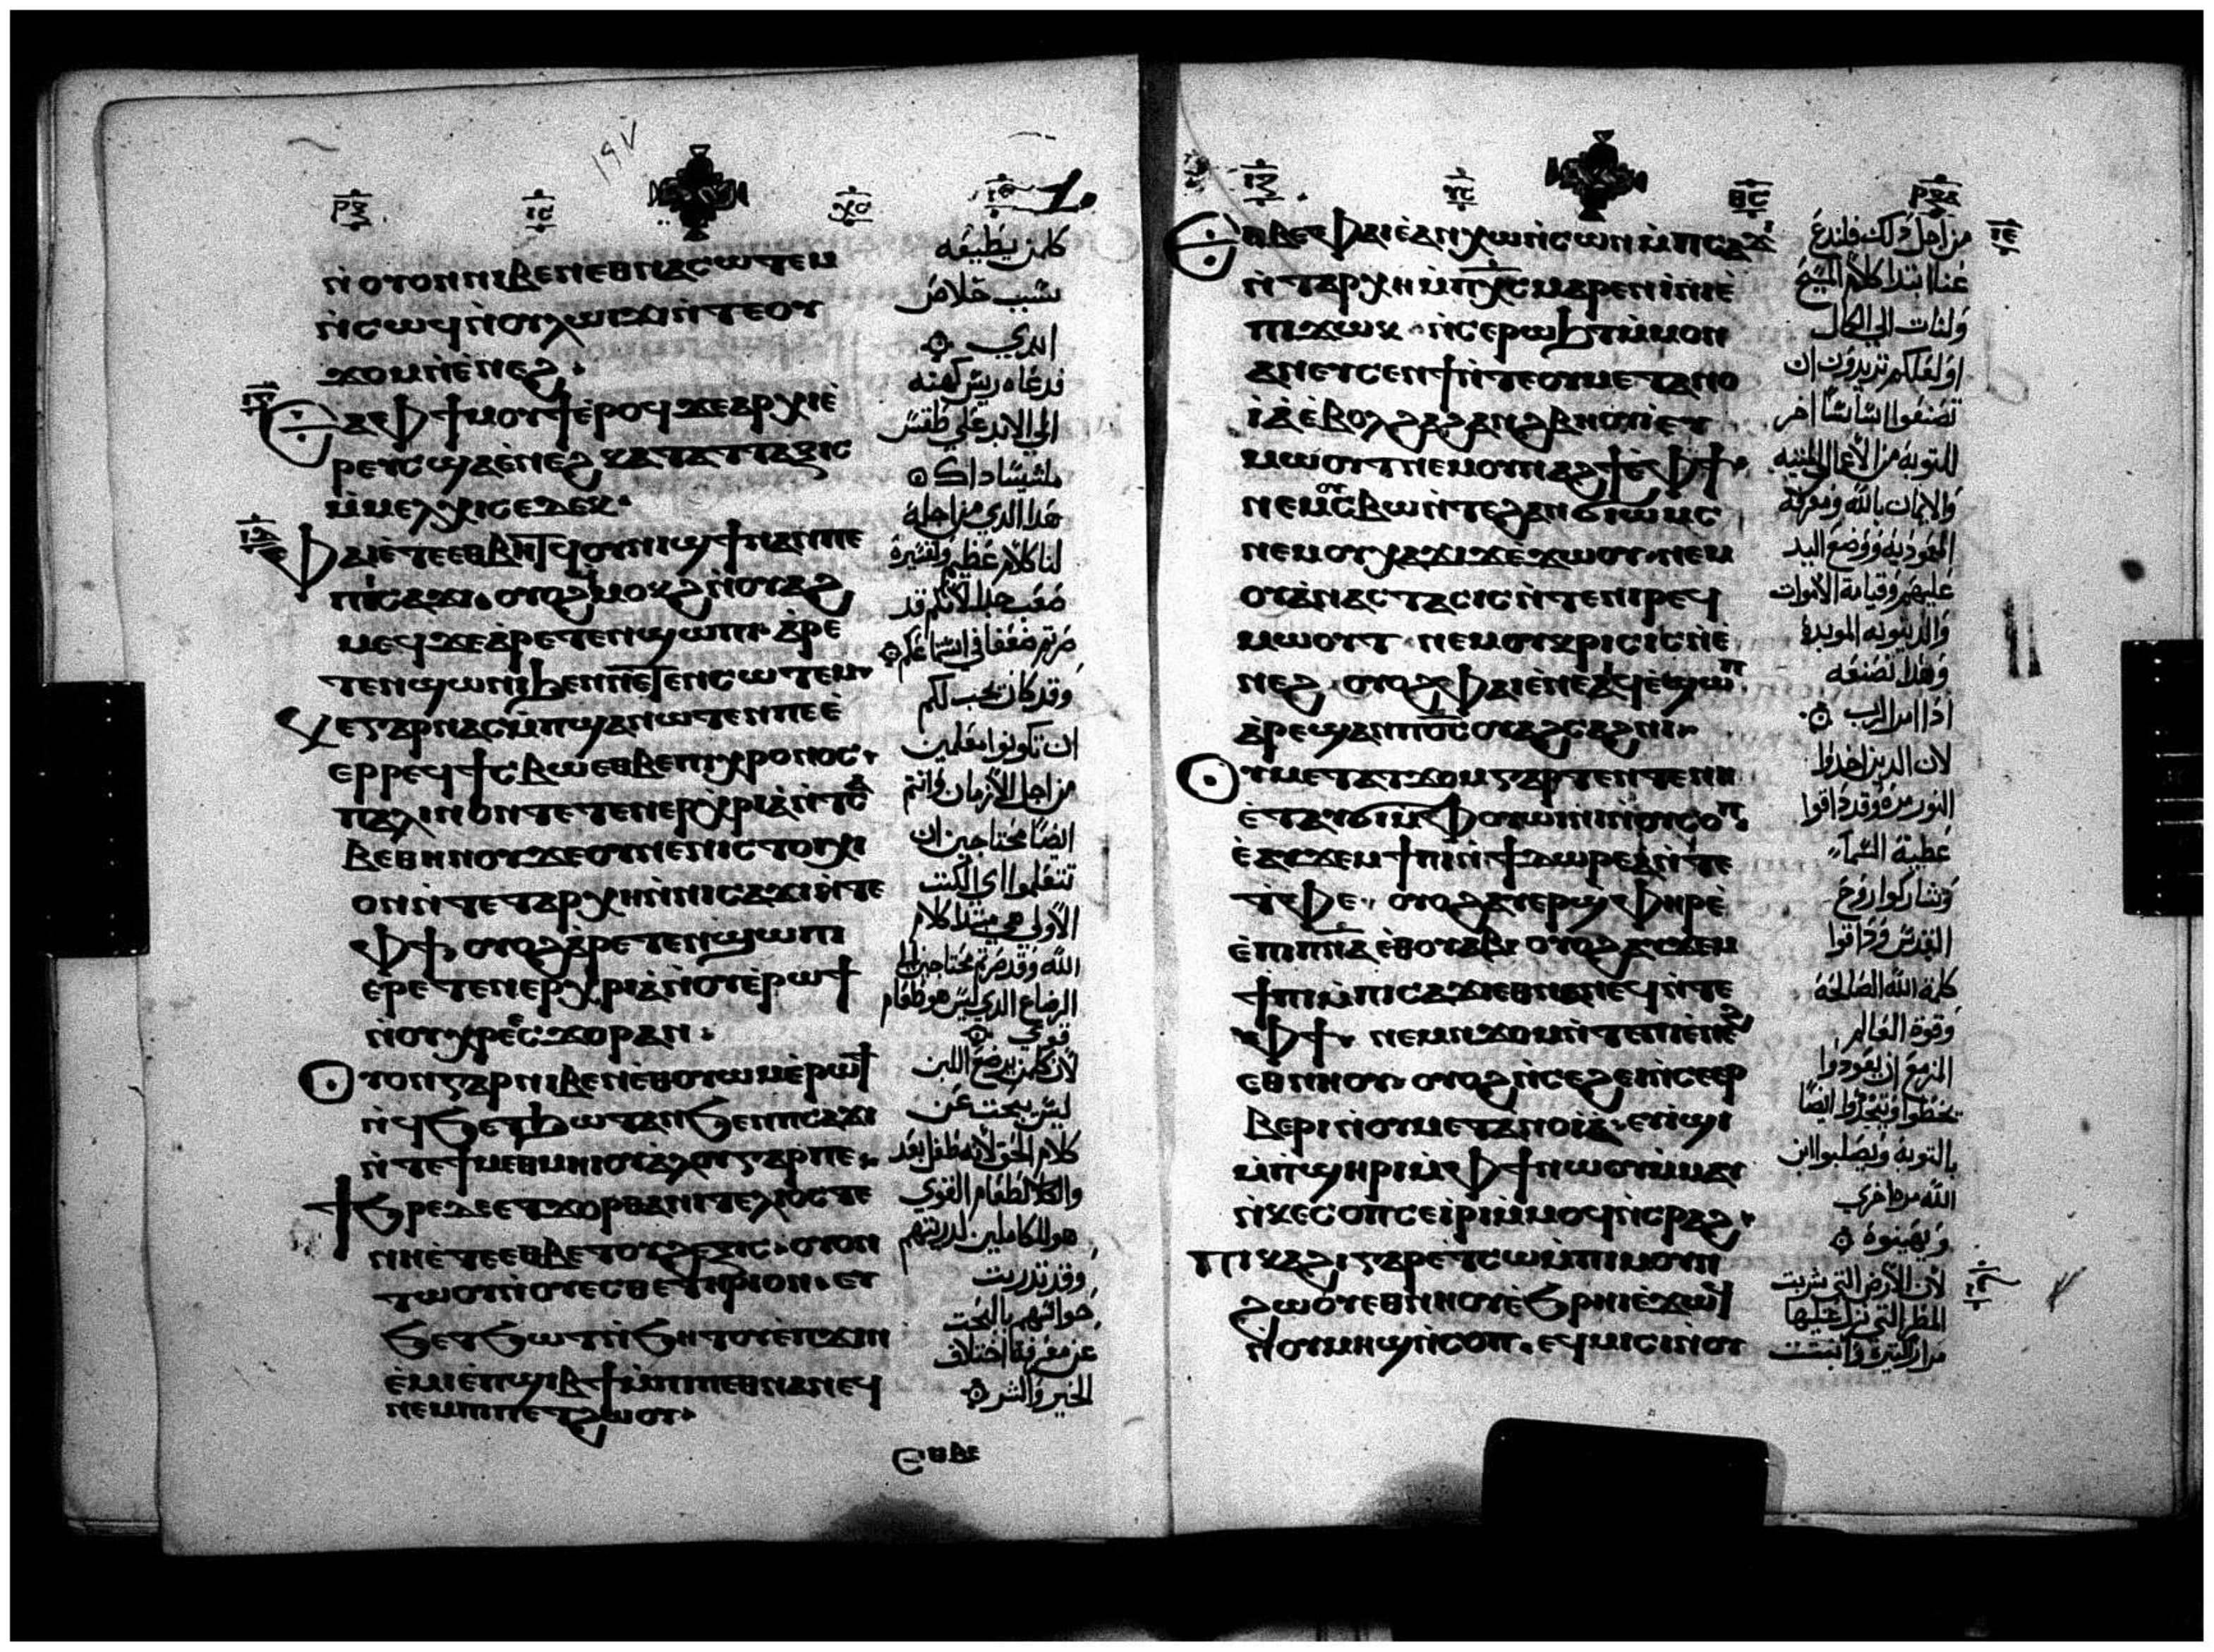 ⲛ̀ⲟⲩⲟⲛ ⲛⲓⲃⲉⲛ ⲉⲑⲛⲁⲥⲱⲧⲉⲙ
ⲛ̀ⲥⲱϥ ⲛ̀ⲟⲩⲗⲱⲓϫⲓ ⲛ̀ⲧⲉ ⲟⲩ
ϫⲟⲙ ⲛ̀ⲉ̀ⲛⲉϩ
ⲉⲁ ⲫϯ ⲙⲟⲩϯ ⲉ̀ⲣⲟϥ ϫⲉ ⲁⲣⲭⲓⲉ̀
ⲣⲉⲩⲥ ϣⲁ ⲉ̀ⲛⲉϩ ⲕⲁⲧⲁ ⲧⲧⲁⲝⲓⲥ
ⲙ̀ⲙⲉⲗⲭⲓⲥⲉⲇⲉⲕ
ⲫⲁⲓ ⲉ̀ⲧⲉ ⲉⲑⲃⲏⲧϥ ⲟⲩⲛⲓϣϯ ⲡⲁⲛ ⲡⲉ
ⲡⲓⲥⲁϫⲓ ⲟⲩⲟϩ ϥⲙⲟⲕϩ ⲛ̀ⲟⲩⲁϩ
ⲙⲉϥ ϫⲉ ⲁ̀ⲣⲉⲧⲉⲛϣⲱⲡⲓ ⲁ̀ⲣⲉ
ⲧⲉⲛϣⲱⲛⲓ ϧⲉⲛ ⲛⲉⲧⲉⲛⲥⲱⲧⲉⲙ
ⲕⲉ ⲅⲁⲣ ⲛⲁⲥⲙ̀ⲡϣⲁ ⲛⲱⲧⲉⲛ ⲡⲉ ⲉ̀
ⲉⲣⲣⲉϥϯⲥⲃⲱ ⲉⲑⲃⲉ ⲡⲓⲭⲣⲟⲛⲟⲥ
ⲡⲁⲗⲓⲛ ⲟⲛ ⲧⲉⲧⲉⲛⲉⲣⲭⲣⲓⲁ ⲛ̀ⲧⲥⲁ
ⲃⲉ ⲑⲏⲛⲟⲩ ϫⲉ ⲟⲩ ⲛⲉ ⲛⲓⲥⲧⲟⲓⲭⲓ
ⲟⲛ ⲛ̀ⲧⲉ ⲧⲁⲣⲭⲏ ⲛ̀ⲛⲓⲥⲁϫⲓ ⲛ̀ⲧⲉ
ⲫϯ ⲟⲩⲟϩ ⲁ̀ⲣⲉⲧⲉⲛϣⲱⲡⲓ
ⲉ̀ⲣⲉⲧⲉⲛⲉⲣⲭⲣⲓⲁ ⲛ̀ⲟⲩⲉ̀ⲣⲱϯ
ⲛ̀ⲟⲩϧⲣⲉ ⲉⲥϫⲟⲣ ⲁⲛ
ⲟⲩⲟⲛ ⲅⲁⲣ ⲛⲓⲃⲉⲛ ⲉ̀ⲑⲟⲩⲱⲙ ⲉ̀ⲣⲱϯ
ⲛ̀ϥϧⲉⲧϧⲱⲧ ⲁⲛ ϧⲉⲛ ⲡⲥⲁϫⲓ
ⲛ̀ⲧⲉ ϯⲙⲉⲑⲙⲏⲓ ⲟⲩⲁ̀ⲗⲟⲩ ⲅⲁⲣ ⲡⲉ
ϯϧⲣⲉ ⲇⲉ ⲉⲧϫⲟⲣ ⲑⲁ ⲛⲓⲧⲉⲗⲓⲟⲥ ⲧⲉ
ⲛⲏ ⲉ̀ⲧⲉ ⲉⲑⲃⲉ ⲧⲟⲩϩⲉⲝⲓⲥ ⲟⲩⲟⲛ
ⲧⲱⲟⲩ ⲛ̀ⲟⲩⲉⲥⲑⲉⲧⲏⲣⲓⲟⲛ ⲉⲩ
ϧⲉⲧϧⲱⲧ ⲛ̀ϧⲏⲧⲟⲩ ⲉ̀ⲡϫⲓⲛ
ⲉ̀ⲙⲓ ⲉ̀ⲡϣⲓⲃϯ ⲙ̀ⲡⲓⲡⲉⲑⲛⲁⲛⲉϥ
ⲛⲉⲙ ⲡⲓⲡⲉⲧϩⲱⲟⲩ
ⲉⲑⲃⲉ
كلمن يطيعه
سبب خلاص
ابدي
فدعاه ريس كهنه
الي الابد علي طقس
ملشيساداك
هدا الدي من اجله
لنا كلام عظيم وتفسيره
صعب جدا لانكم قد
صرتم ضعفا في استماعكم
وقد كان يجب لكم
ان تكونوا معلمين
من اجل الازمان وانتم
ايضا محتاجين ان
تتعلموا اي الكتب
الاولي هي مبتدا كلام
الله وقد صرتم محتاجين الي
الرضاع الدي ليس هو طعام
قوي
لان كلمن يرضع اللبن
ليس يبحت عن
كلام الحق لانه طفل بعد
واما الطعام القوي
هو للكاملين لدربتهم
وقد تدربت
حواسهم بالبحت
عن معرفة اختلاف
الخير والشر
ⲉⲑⲃⲉ ⲫⲁⲓ ⲉ̀ⲁⲛⲭⲱ ⲛ̀ⲥⲱⲛ ⲙ̀ⲡⲥⲁϫⲓ
ⲛ̀ⲧⲁⲣⲭⲏ ⲙ̀ⲡⲭⲥ ⲙⲁⲣⲉⲛⲓ̀ⲛⲓ ⲉ̀
ⲡⲓϫⲱⲕ ⲛ̀ⲥⲉⲣⲱϧⲧ ⲙ̀ⲙⲟⲛ
ⲁⲛ ⲉⲩⲥⲉⲛϯ ⲛ̀ⲧⲉ ⲟⲩⲙⲉⲧⲁⲛⲟ
ⲓⲁ̀ ⲉ̀ⲃⲟⲗ ϩⲁ ϩⲁⲛϩⲃⲏⲟⲩⲓ̀ ⲉⲩ
ⲙⲱⲟⲩⲧ ⲛⲉⲙ ⲟⲩⲛⲁϩϯ ⲉ̀ ⲫϯ
ⲛⲉⲙ ⲟⲩⲥⲃⲱ ⲛ̀ⲧⲉ ϩⲁⲛϭⲓⲱⲙⲥ
ⲛⲉⲙ ⲟⲩⲭⲁϫⲓϫ ⲉ̀ϫⲱⲟⲩ ⲛⲉⲙ
ⲟⲩⲁ̀ⲛⲁⲥⲧⲁⲥⲓⲥ ⲛ̀ⲧⲉ ⲛⲓⲣⲉϥ
ⲙⲱⲟⲩⲧ ⲛⲉⲙ ⲟⲩⲕⲣⲓⲥⲓⲥ ⲛ̀ⲉ̀
ⲛⲉϩ ⲟⲩⲟϩ ⲫⲁⲓ ⲉ̀ⲛⲉⲁⲓϥ ⲉϣⲱⲡ
ⲁ̀ⲣⲉϣⲁⲛ ⲡ̅ⲟ̅ⲥ̅ ⲟⲩⲁϩⲥⲁϩⲛⲓ
ⲟⲩⲙⲉⲧⲁⲧϫⲟⲙ ⲅⲁⲣ ⲧⲉ ⲛ̀ⲧⲉ ⲛⲏ
ⲉ̀ⲧⲁⲩϭⲓ ⲙ̀ⲫⲟⲩⲱⲓⲛⲓ ⲛ̀ⲟⲩⲥⲟⲡ
ⲉ̀ⲁⲩϫⲉⲙϯⲡⲓ ⲛ̀ϯⲇⲱⲣⲉⲁ̀ ⲛ̀ⲧⲉ
ⲧⲫⲉ ⲟⲩⲟϩ ⲁⲩⲉⲣϣⲫⲏⲣ ⲉ̀
ⲉ̀ⲡⲓⲡ̅ⲛ̅ⲁ̅ ⲉⲑⲟⲩⲁⲃ ⲟⲩⲟϩ ⲁⲩϫⲉⲙ
ϯⲡⲓ ⲙ̀ⲡⲓⲥⲁϫⲓ ⲉⲑⲛⲁⲛⲉϥ ⲛ̀ⲧⲉ
ⲫϯ ⲛⲉⲙ ⲛϫⲟⲙ ⲛ̀ⲧⲉ ⲡⲓⲉ̀ⲛⲉϩ
ⲉⲑⲛⲏⲟⲩ ⲟⲩⲟϩ ⲛ̀ⲥⲉϩⲉⲓ ⲛ̀ⲥⲉⲉⲣ
ⲃⲉⲣⲓ ⲛ̀ⲟⲩⲙⲉⲧⲁⲛⲟⲓⲁ ⲉⲩⲓϣⲓ
ⲙ̀ⲡϣⲏⲣⲓ ⲙ̀ⲫϯ ⲛⲱⲟⲩ ⲙ̀ⲙⲁⲩ
ⲛ̀ⲕⲉⲥⲟⲡ ⲥⲉⲓ̀ⲣⲓ ⲙ̀ⲙⲟϥ ⲛ̀ⲥⲣⲁϩ
ⲡⲓⲕⲁϩⲓ ⲅⲁⲣ ⲉ̀ⲧⲥⲱ ⲙ̀ⲡⲓⲙⲟⲩⲛ
ϩⲱⲟⲩ ⲉⲑⲛⲏⲟⲩ ⲉ̀ϧⲣⲏⲓ ⲉ̀ϫⲱϥ
ⲛ̀ⲟⲩⲙⲏϣ ⲛ̀ⲥⲟⲡ ⲉϥⲙⲓⲥⲓ ⲛ̀ⲟⲩ
من اجل دلك فلندع
عنا ابتدا كلام المسيح
ولنات الي الكمال
او لعلكم تريدون ان
تصنعوا اساسا اخر
للتوبه من الاعمال الميته
والايمان بالله ومعرفة
المعموديه ووضع اليد
عليهم وقيامة الاموات
والدينونه الموبدة
وهدا نصنعه
ادا امر الرب
لان الدين اخدوا
النور مرة وقد داقوا
عطية السماء
وشاركوا روح
القدس وداقوا
كلمة الله الصالحة
وقوة العالم
المزمع ان يعودوا
يخطوا ويتجددوا ايضا
بالتوبة ويصلبوا ابن
الله مره اخري
ويهينوه
لان الارض التي شربت
المطر التي نزل عليها
مرار كتيرة وانبتت